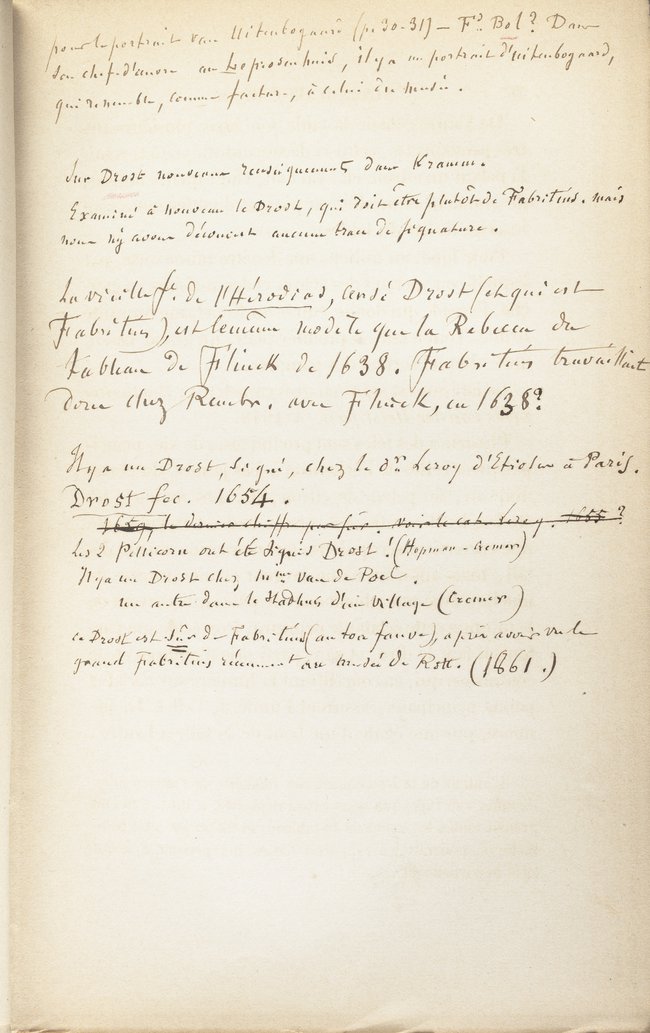 pour le portrait van Uitenbogaard (pe 30-31) — Fd Bol? Dans
son chef-d'œuvre au Leprosenhuis, il y a un portrait d'Uitenbogaard,
qui ressemble, comme facture, à celui du musée.
Sur Drost nouveaux renseignements dans Kramm.
Examiné à nouveau le Drost, qui doit être plutôt de Fabritius. mais
nous n'y avons découvert aucune trace de signature.
La vieille fe. de l'Hérodias, censé Drost (et qui est
Fabritius), est le même modèle que la Rebecca du
tableau de Flinck de 1638. Fabritius travaillait
donc chez Rembr. avec Flinck, en 1638?
Il y a un Drost, signé, chez le dr Leroy d'Etiolles à Paris.
Drost fec. 1654.
le dernier chiffre pas sûr voir le cat. Leroy. 1655?
Les 2 Pellicorn ont été signés Drost! (Hopman - Cremer)
Il y a un Drost chez mme van de Poel.
un autre dans le Stadhuis d'un village (Cremer)
ce Drost est sûr de Fabritius (au ton fauve), après avoir vu le
grand Fabritius récemment au musée de Rott. (1861.)